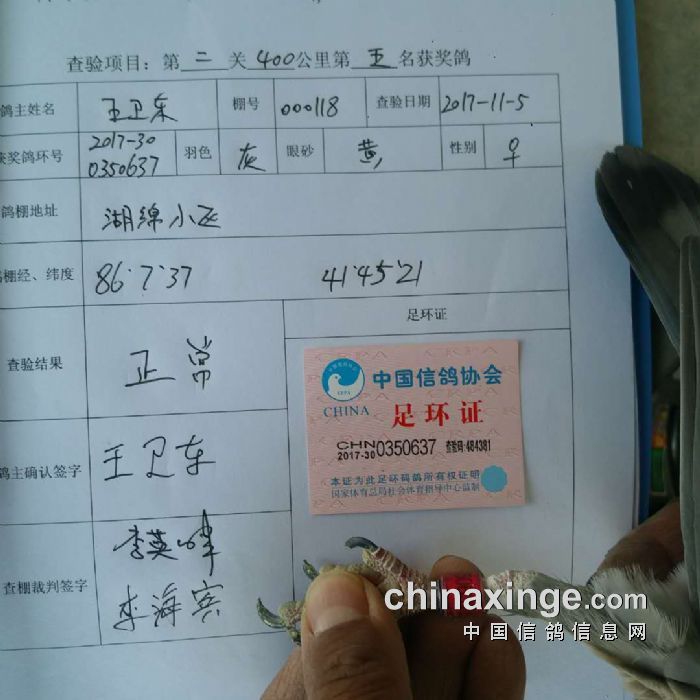 查验项目：第 二 关 400公里第 五 名获奖鸽
鸽主姓名 王卫东 棚号 000118 查验日期 2017-11-5
获奖鸽环号 2017-30 0350637 羽色 灰 眼砂 黄 性别 ♀
鸽棚地址 湖绵小区
棚经、纬度 86·7·37 41·45·21
查验结果 正常 足环证
中国信鸽协会
CHINA
足环证
CHN
2017-30 0350637 查验码: 484381
本证为此足环码鸽所有权证明
国家体育总局社会体育指导中心监制
鸽主确认签字 王卫东
查棚裁判签字 李英峰
李海宾
chinaxinge.com
中国信鸽信息网